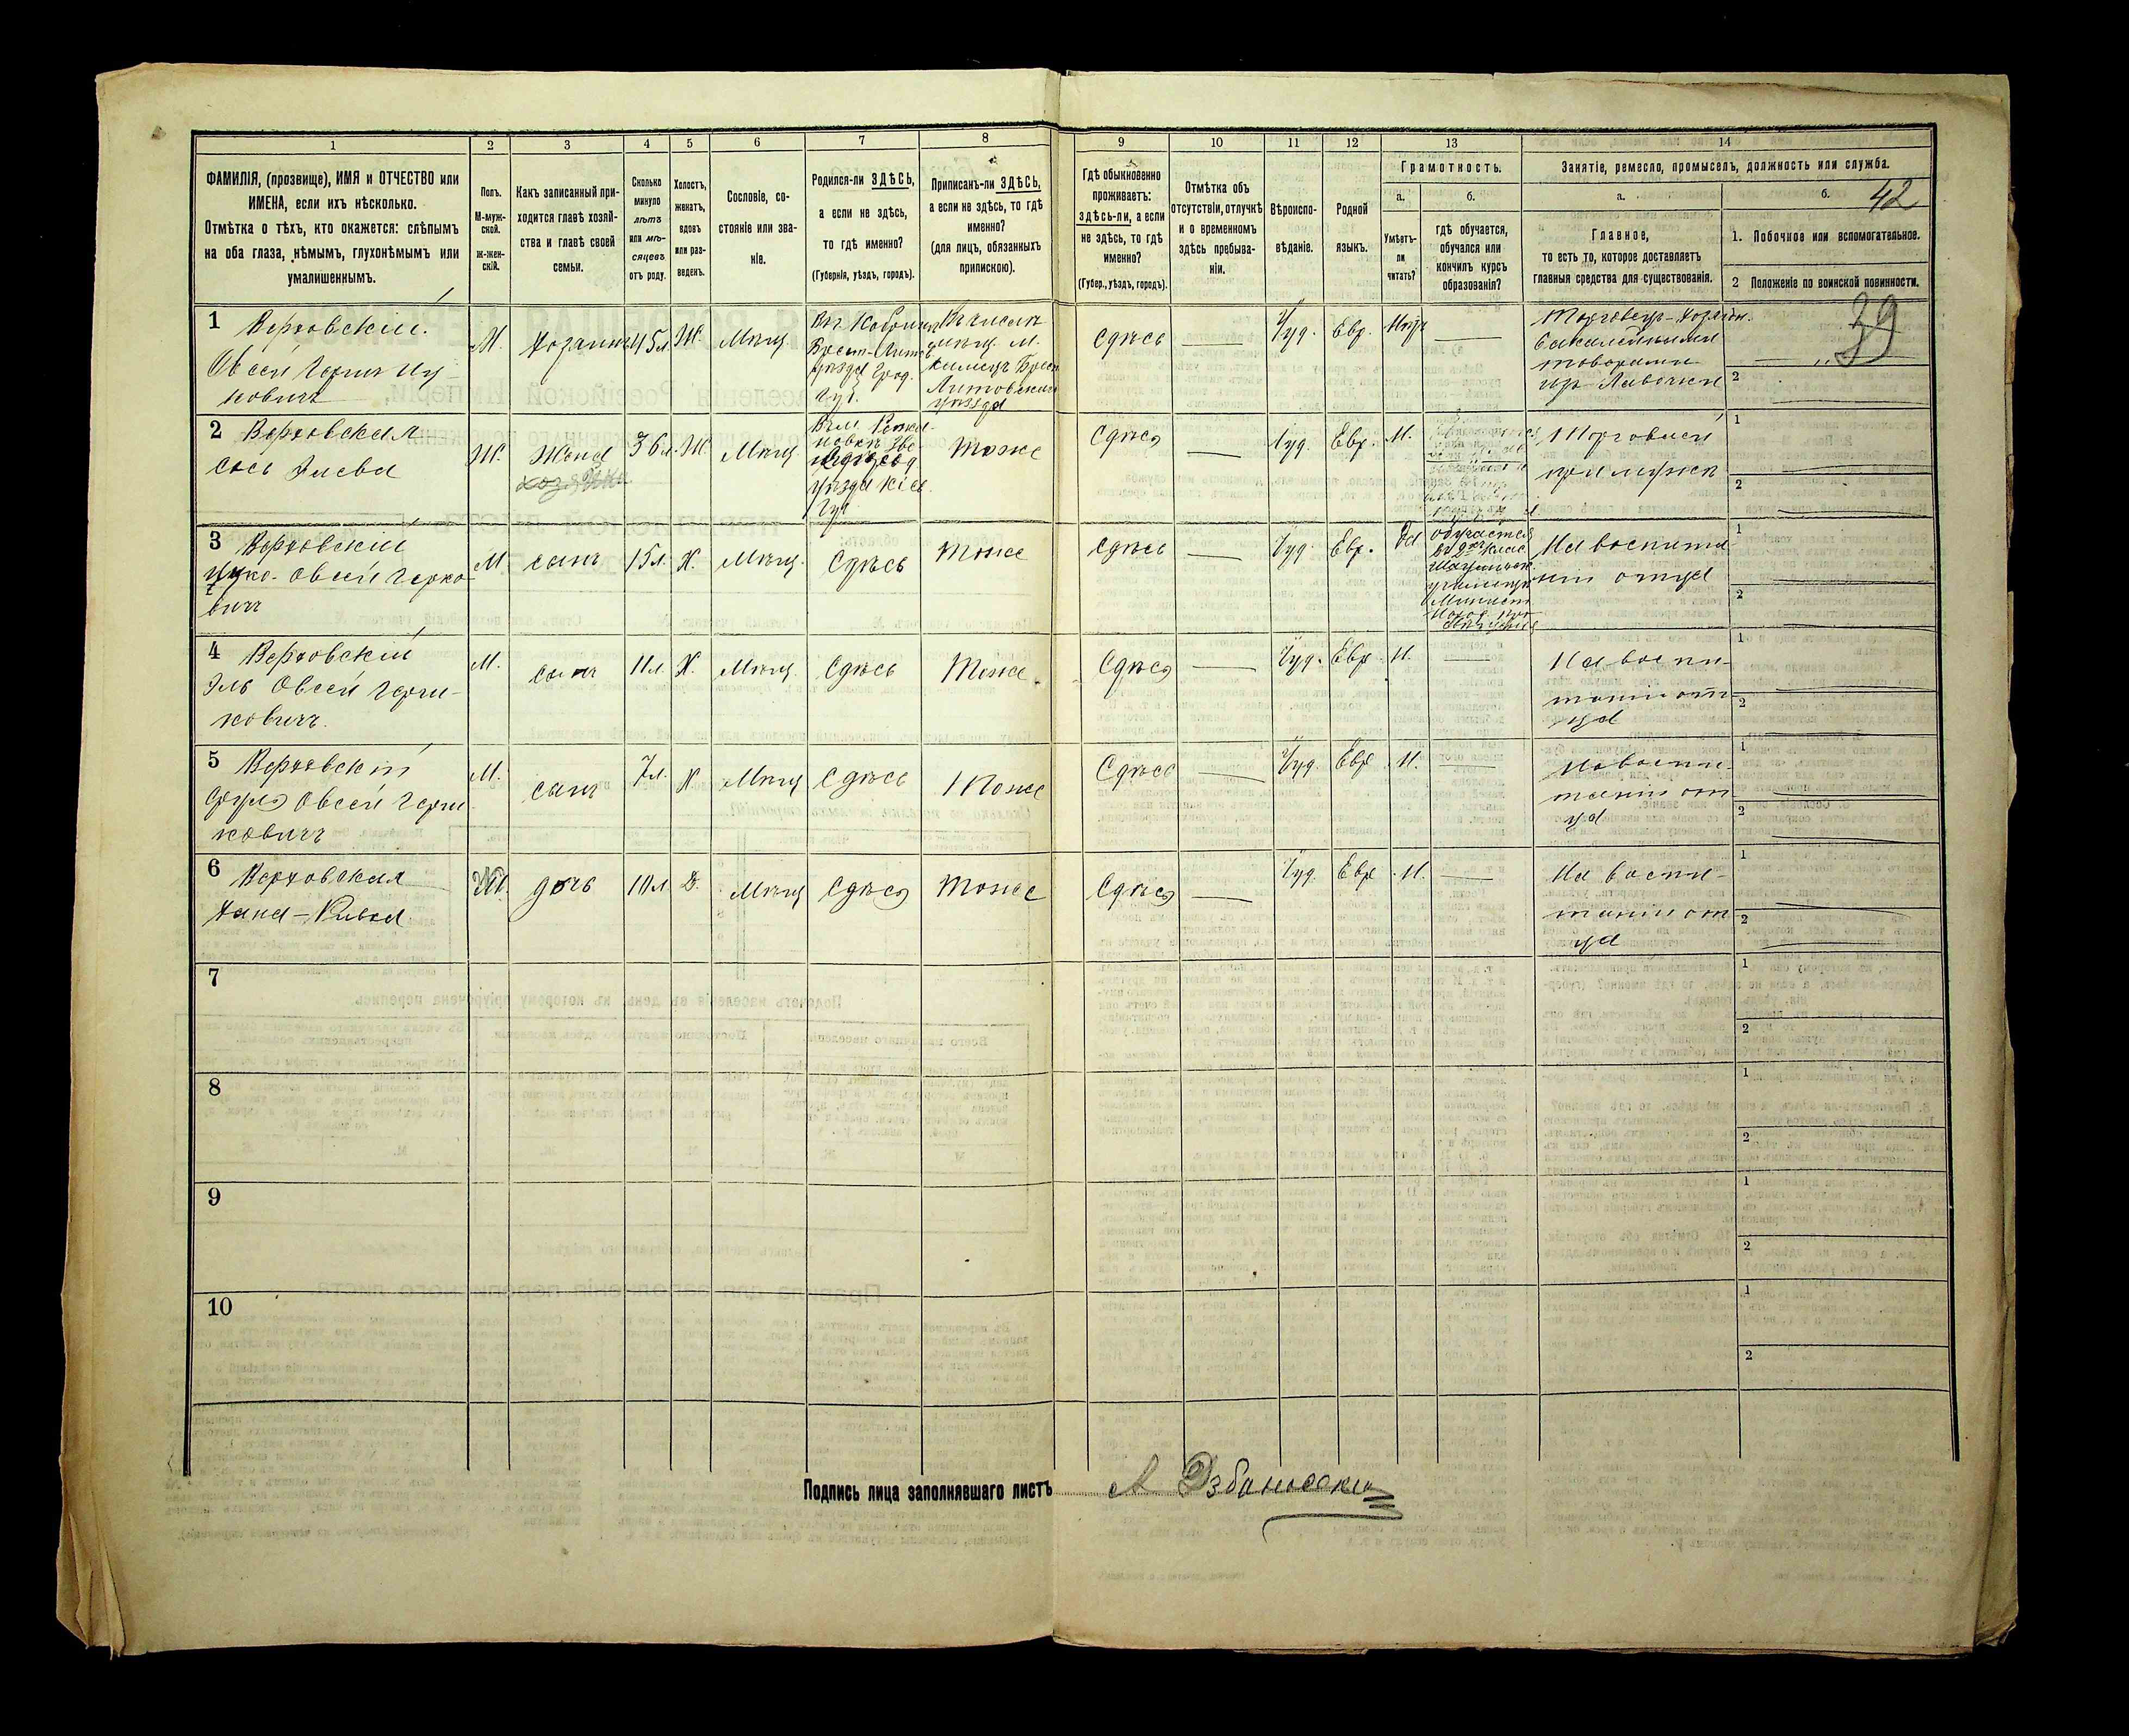 1
2
3
4
5
6
7
8
9
10
11
12
13
14
ФАМИЛІЯ, (прозвище), ИМЯ и ОТЧЕСТВО или
ИМЕНА, если ихъ нѣсколько.
Отмѣтка о тѣхъ, кто окажется: слѣпымъ
на оба глаза, нѣмымъ, глухонѣмымъ или
умалишеннымъ.
Полъ.
М-муж-
ской.
ж-жен-
скій.
Какъ записанный при-
ходится главѣ хозяй-
ства и главѣ своей
семьи.
Сколько
минуло
лѣтъ
или мѣ-
сяцевъ
отъ роду.
Холостъ,
женатъ,
вдовъ
или раз-
веденъ.
Сословіе, со-
стояніе или зва-
ніе.
Родился-ли ЗДѢСЬ,
а если не здѣсь,
то гдѣ именно?
(Губернія, уѣздъ, городъ).
Приписанъ-ли ЗДѢСЬ,
а если не здѣсь, то гдѣ
именно?
(для лицъ, обязанныхъ
припискою).
Гдѣ обыкновенно
проживаетъ:
здѣсь-ли, а если
не здѣсь, то гдѣ
именно?
(Губер., уѣздъ, городъ).
Отмѣтка объ
отсутствіи, отлучкѣ
и о временномъ
здѣсь пребыва-
ніи.
Вѣроиспо-
вѣданіе.
Родной
языкъ.
Грамотность.
а.
Умѣетъ-
ли
читать?
б.
гдѣ обучается,
обучался или
кончилъ курсъ
образованія?
Занятіе, ремесло, промыселъ, должность или служба.
а.
Главное,
то есть то, которое доставляетъ
главныя средства для существованія.
б.
42
1. Побочное или вспомогательное.
2 Положеніе по воинской повинности.
39
1 Верховскій.
Овсей Герш Иц
ковичъ
М.
Хозяинъ
45 л.
Ж.
Мѣщ.
Въ г. Кобринѣ
Брест-Литов.
уѣзда Грод.
Губ.
Въ числѣ
мѣщ. м.
Каменц Брест
Литовскаго
уѣзда
Сдѣсь
Іуд.
Евр.
Нѣтъ
Торговецъ-Хозяин.
бакалейными
товарами
изъ Лавочки
2
2 Верховская
Сось Элева
Ж.
Жена
хозяина
36 л.
Ж.
Мѣщ.
уѣзда Кіев.
Губ.
Тоже
Сдѣсь
Іуд.
Евр.
Н.
Торговаси
при мужѣ
1
2
3 Верховскій
Ицко-Овсей Герко
вичъ
М.
сынъ
15 л.
Х.
Мѣщ.
Сдѣсь
Тоже
Сдѣсь
Іуд.
Евр.
Да
обучается
въ 2мъ клас.
училищѣ
На воспита
ніи отца
1
2
4 Верховскій
Эль Овсей Герш-
ковичъ.
М.
сынъ
11 л.
Х.
Мѣщ.
Сдѣсь
Тоже
Сдѣсь
Іуд.
Евр.
Н.
На воспи-
таніи от-
ца
1
2
5 Верховскій
Овсей Герш
ковичъ
М.
сынъ
7 л.
Х
Мѣщ
Сдѣсь
Тоже
Сдѣсь
Іуд.
Евр.
Н.
На воспи-
таніи от-
ца
1
2
6 Верховская
Хана-Ривка
Ж.
дочь
10 л.
Д.
Мѣщ
Сдѣсь
Тоже
Сдѣсь
Іуд.
Евр.
Н.
На воспи-
таніи от
ца
1
2
7
1
2
8
1
2
9
1
2
10
1
2
Подпись лица заполнявшаго листъ